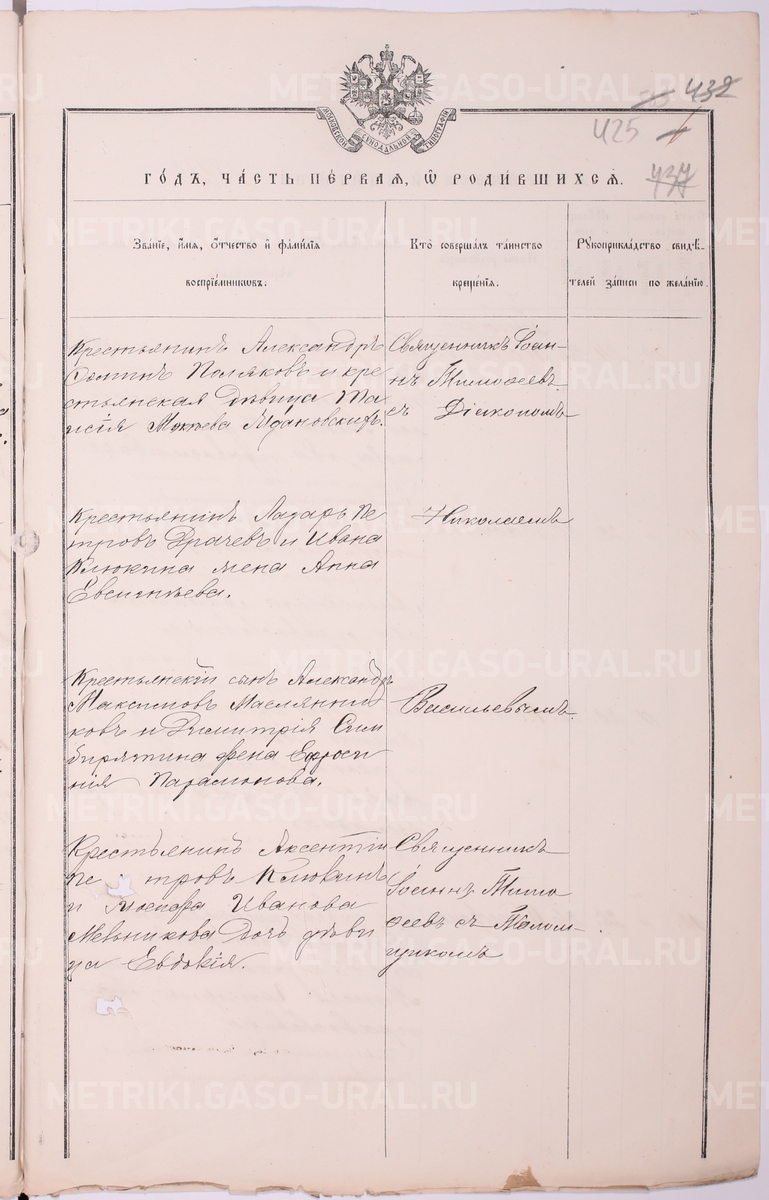 432
425
437
МОСКОВСКОЙ СѴНОДАЛЬНОЙ ТИПОГРАФІИ
ГО́ДЪ, ЧА́СТЬ ПЕ́РВАЯ, Ѡ РОДИ́ВШИХСЯ.
Зва́нїе, и́мѧ, ѻ҆́тчество и҆ фами́лїѧ
воспрїе́мниковъ.
Кто̀ соверша́лъ та́инство
креще́нїѧ.
Рукоприкла́дство свидѣ-
телей за́писи по жела́нїю.
Крестьянинъ Александръ
Поляковъ и кре
стьянская дѣвица Та
исія Мокѣева Ждановскихъ.
Священникъ Іоан-
нъ Тимоѳеевъ
съ Діакономъ
Крестьянинъ Лазарь Пе
тровъ Драчевъ и Ивана
Клюкина жена Анна
Евсигнѣева.
Николаемъ
Крестьянскій сынъ Александръ
Максимовъ Маслянни
ковъ и Димитрія Сим
бирятина жена Евфроси
нія Парамонова.
Васильевымъ.
Крестьянинъ Аксентій
Пе тровъ Клюкинъ
и Иванова
Мельникова дочь дѣви
ца Евдокія.
Священникъ
Іоаннъ Тимо
ѳеевъ съ Псалом-
щикомъ
METRIKI.GASO-URAL.RU